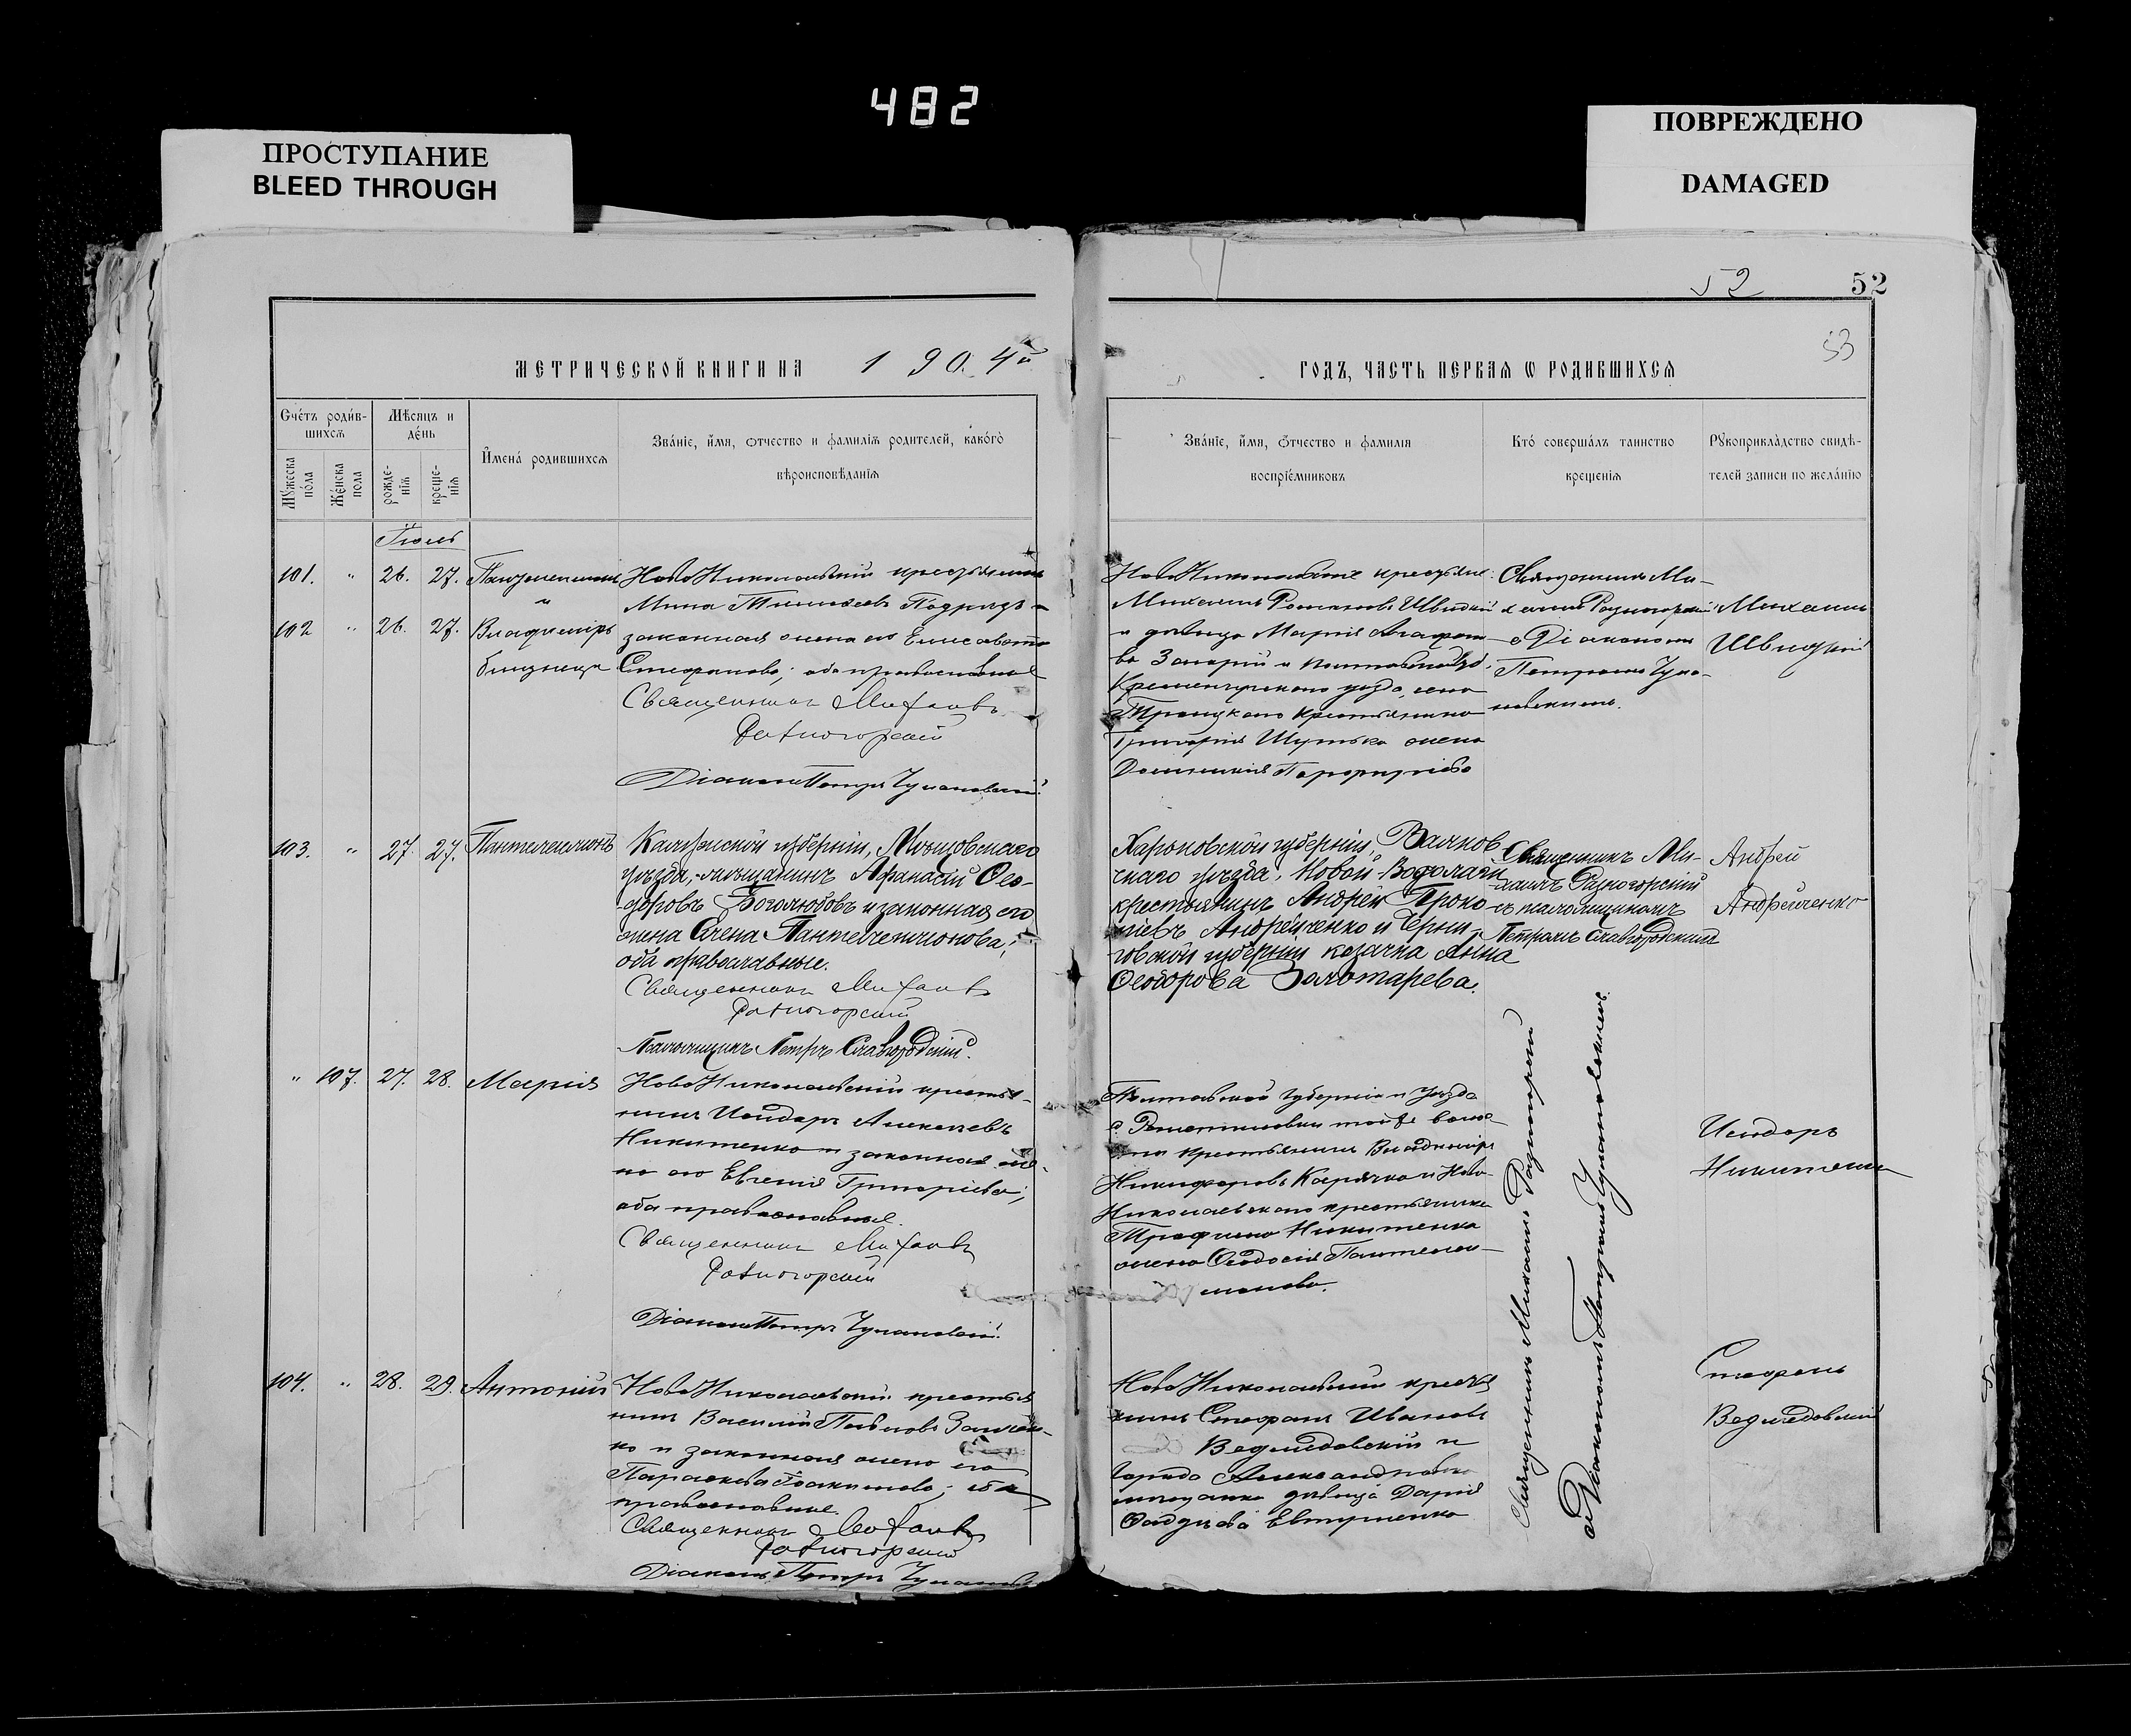 482
ПРОСТУПАНИЕ
BLEED THROUGH
ПОВРЕЖДЕНО
DAMAGED
52
52
53
МЕТРИЧЕСКОЙ КНИГИ НА 1904й
ГОДЪ, ЧАСТЬ ПЕРВАЯ Ѡ РОДИВШИХСЯ
Счетъ родив-
шихся
Мужеска
пола
Женска
пола
Мѣсяцъ и
день
рожде-
нія
креще-
нія
Имена родившихся
Званіе, имя, отчество и фамилія родителей, какого
вѣроисповѣданія
Званіе, имя, отчество и фамилія
воспріемниковъ
Кто совершалъ таинство
крещенія
Рукоприкладство свидѣ-
телей записи по желанію
Іюль
101. " 26. 27. Пантелеимонъ
102 " 26. 27. Владиміръ
близнецы
НовоНиколаевскій крестьянинъ
Мина
законная жена его Елисавета
Стефанова; оба православные
Священникъ Михаилъ
Разногорскій
Діаконъ Петръ Чулановскій.
НовоНиколаевскіе крестьяне:
Михаилъ Романовъ Швидкій
и дѣвица Марія
Кременчугскаго уѣзда, села
Троицкаго крестьянина
Григорія жена
Священникъ Ми-
хаилъ Разногорскій
с Діакономъ
Петромъ Чула-
новскимъ.
Михаилъ
Швидкій
103. " 27. 27. Пантелеимонъ
Калужской губерніи, Мещовскаго
уѣзда, мѣщанинъ Афанасій Ѳео-
доровъ Боголюбовъ и законная его
жена Елена Пантелеимонова;
оба православные.
Священникъ Михаилъ
Разногорскій
Псаломщикъ Петръ Славгородскій.
Харьковской губерніи, Валков
скаго уѣзда, Новой-Водолаги
крестьянинъ Андрей Проко
піевъ Андрейченко и Черни-
говской губерніи козачка Анна
Ѳеодорова Золотарева.
Священникъ Ми-
хаилъ Разногорскій
съ псаломщикомъ
Петромъ Славгородскимъ
Андрей
Андрейченко
" 107. 27. 28. Марія
НовоНиколаевскій крестья-
нинъ Исидоръ Алексѣевъ
Никитенко и законная же-
на его Евгенія Григоріева;
оба православные.
Священникъ Михаилъ
Разногорскій
Діаконъ Петръ Чулановскій.
Полтавской Губерніи и Уѣзда
с. Решетиловки той же волос
крестьянинъ Владиміръ
Никифоровъ Карячка и Ново-
Николаевскаго крестьянина
Трофима Никитенка
жена Ѳеодосія Пантелеи-
монова.
Священникъ Михаилъ Разногорскій
съ Діакономъ Петромъ Чулановскимъ.
Исидоръ
Никитенко
104. " 28. 29. Антоній
НовоНиколаевскій крестья
нинъ Василій Павловъ
и законная жена его
Параскева Іоакимова; оба
православные.
Священникъ Михаилъ
Разногорскій
Діаконъ Петръ Чулановскій
НовоНиколаевскій крестья
нинъ Стефанъ Ивановъ
Ведмедовскій и
города Александровска
мѣщанка дѣвица Дарія
Евтушенко
Стефанъ
Ведмедовскій